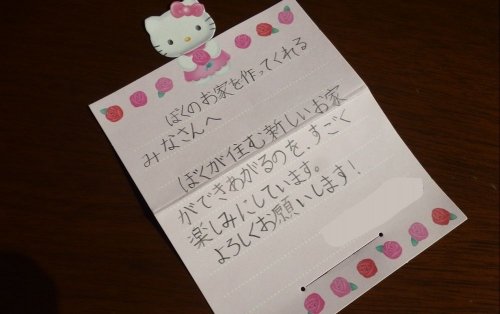 ぼくのお家を作ってくれる
みなさんへ
ぼくが住む新しいお家
ができあがるのを、すごく
楽しみにしています。
よろしくお願いします!